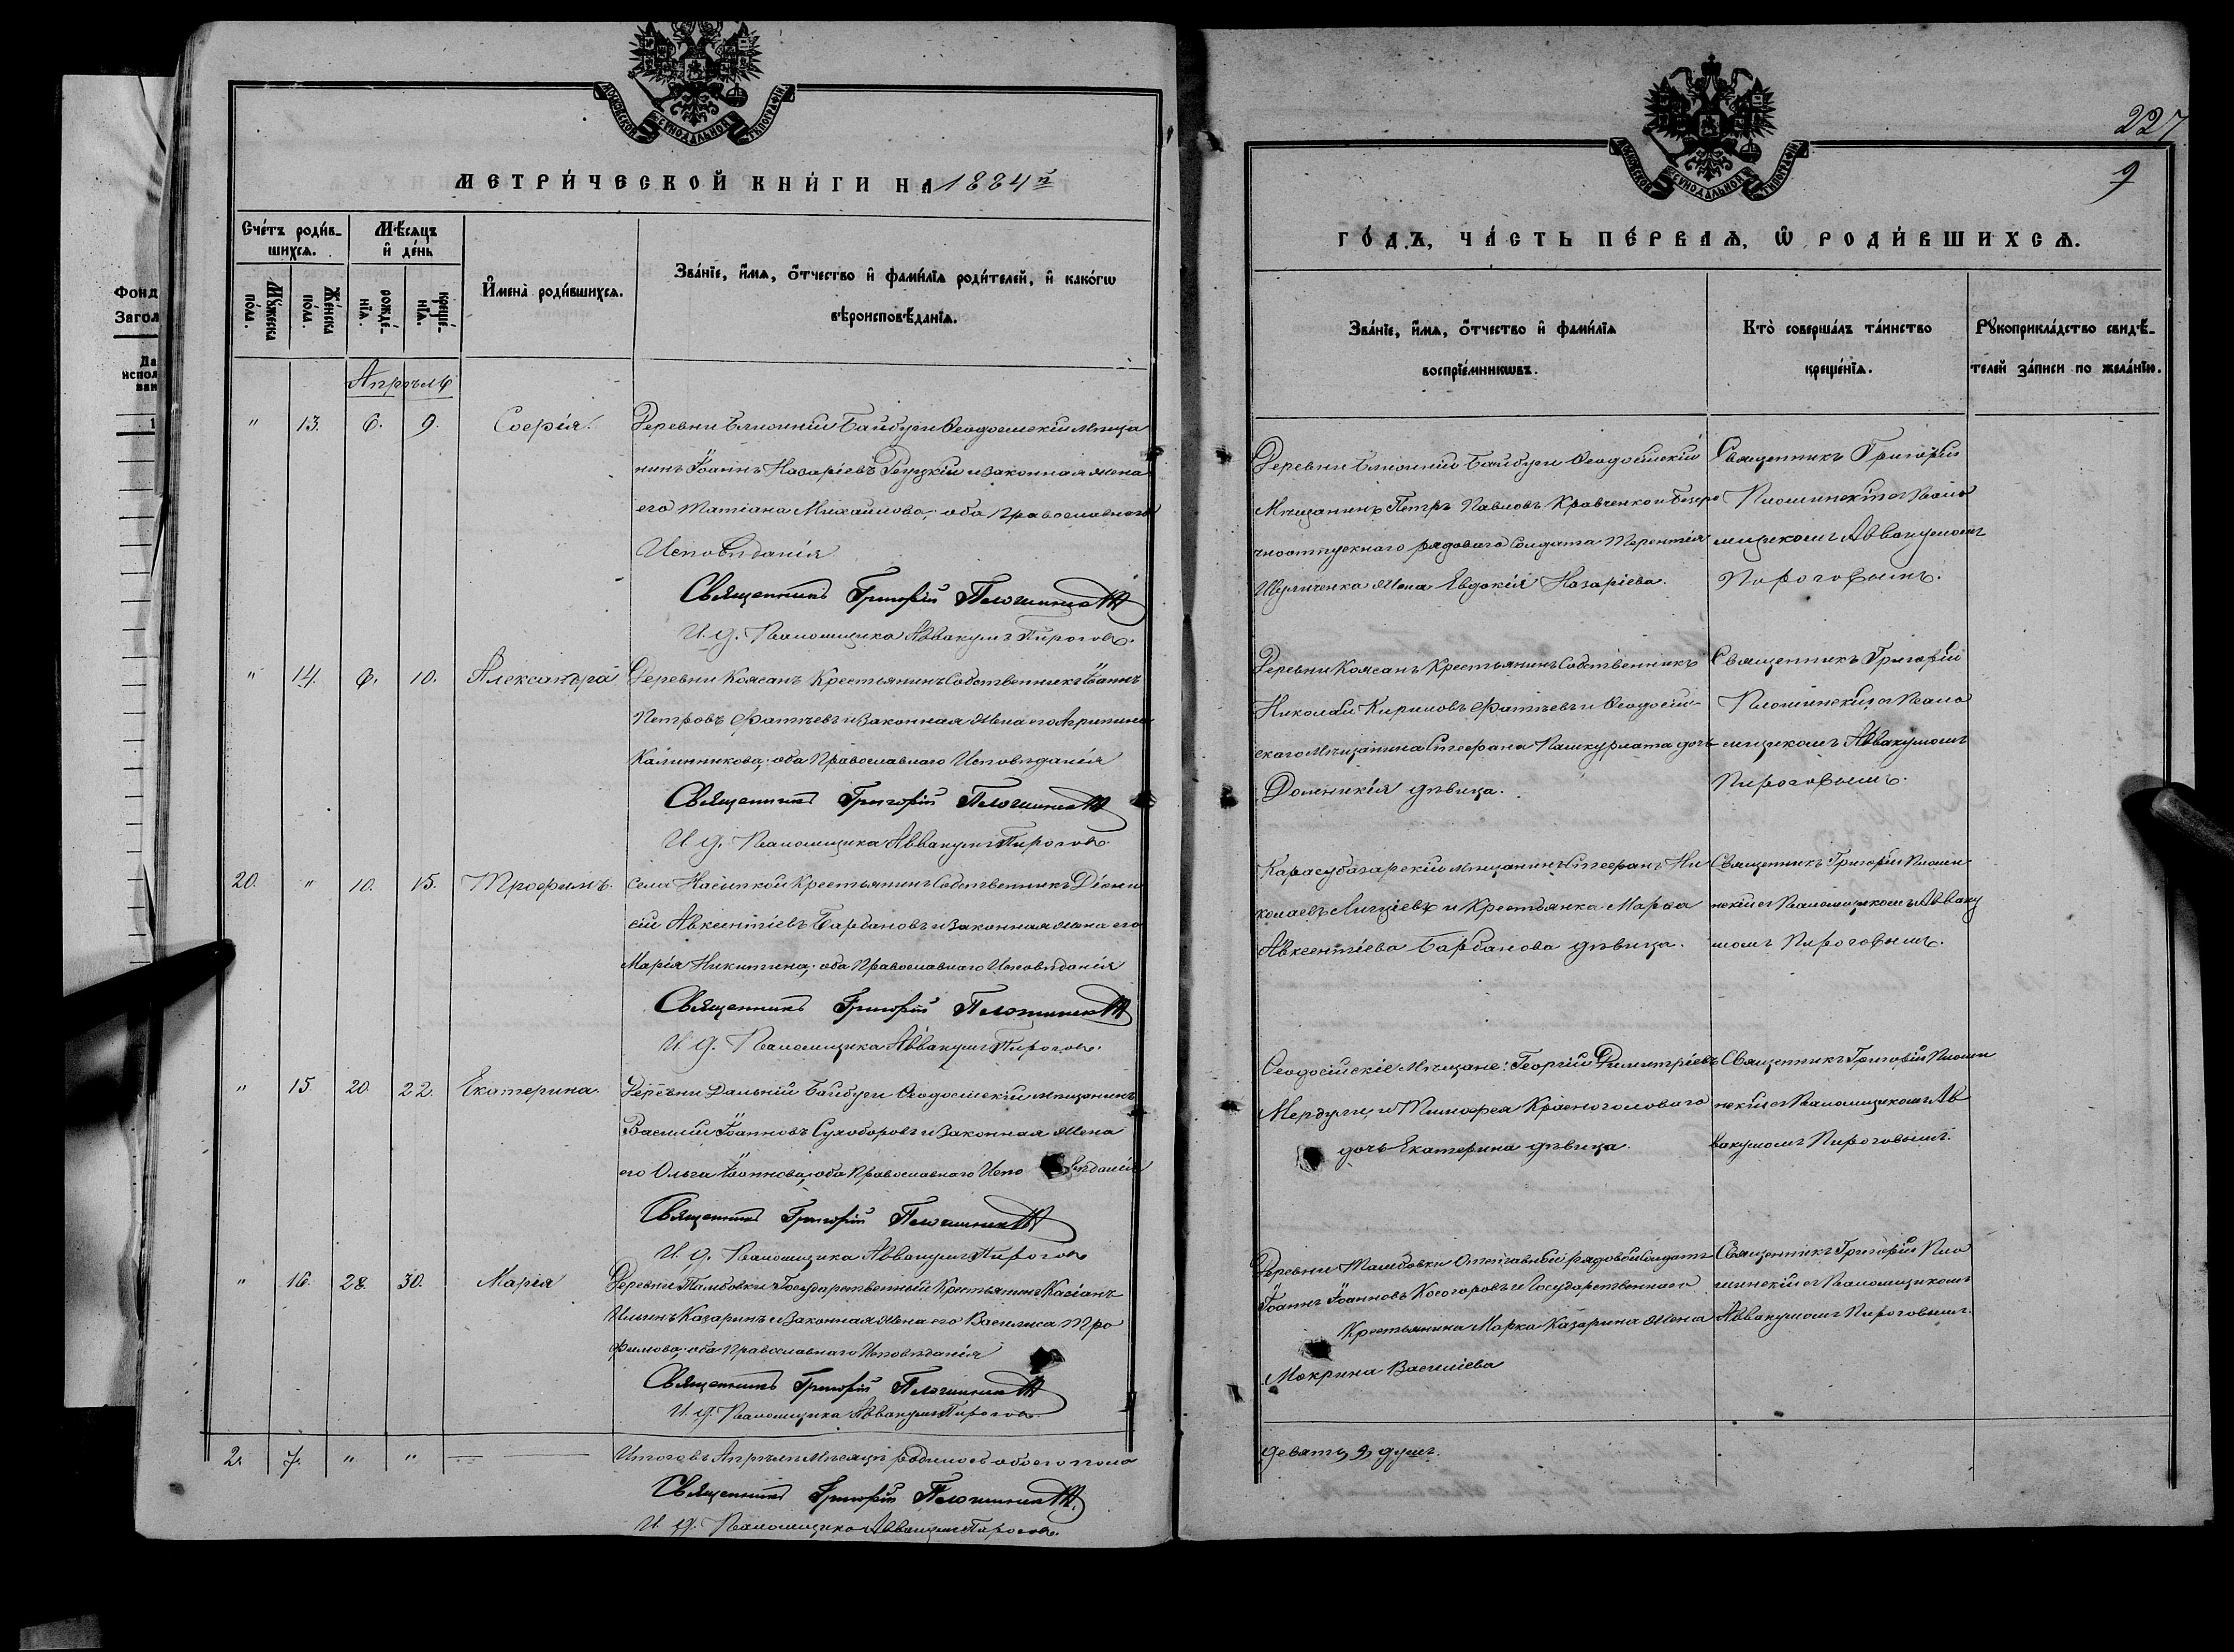 МОСКОВСКОЙ СѴНОДАЛЬНОЙ ТИПОГРАФІИ
МЕТРИ́ЧЕСКОЙ КНИ́ГИ НА 1884й
Сче́тъ роди́в-
шихсѧ.
Мꙋ́жеска
по́ла.
Же́нска
по́ла.
Мѣ́сѧцъ
и҆ де́нь
рожде́-
нїѧ.
креще́-
нїѧ.
И҆мена̀ роди́вшихсѧ.
Зва́нїе, и҆́мѧ, ѻ҆́тчество и҆ фами́лїѧ роди́телей, и҆ како́гѡ
вѣроисповѣ́данїѧ.
Апрѣль
" 13. 6. 9. Софія.
Деревни Ближній Байбуги Ѳеодосійскій Мѣща
нинъ Іоаннъ Назаріевъ и законная жена
его Татіана Михаилова, оба Православнаго
Исповѣданія
Священникъ Григорій Плошинскій
И. д. Псаломщика Аввакумъ Пироговъ.
" 14. 6. 10. Александра
Деревни Коясанъ Крестьянинъ Собственникъ Іоаннъ
Петровъ Фатѣевъ и законная жена его Агрипина
Калинникова, оба Православнаго Исповѣданія
Священникъ Григорій Плошинскій
И. д. Псаломщика Аввакумъ Пироговъ.
20. " 10. 15. Трофимъ.
Села Насыпкой Крестьянинъ Собственникъ Діони
сій Авксентіевъ Барбановъ и законная жена его
Марія Никитина, оба Православнаго Исповѣданія
Священникъ Григорій Плошинскій
И. д. Псаломщика Аввакумъ Пироговъ.
" 15. 20. 22. Екатерина.
Деревни Дальній Байбуги Ѳеодосійскій мѣщанинъ
Василій Іоанновъ Сухоборовъ и законная жена
его Ольга Іоаннова, оба Православнаго Испо вѣданія
Священникъ Григорій Плошинскій
И. д. Псаломщика Аввакумъ Пироговъ
" 16. 28. 30. Марія
Деревни Тамбовки Государственный Крестьянинъ Касіанъ
Ильинъ Казаринъ и законная жена его Василиса Тро
фимова, оба Православнаго Исповѣданія
Священникъ Григорій Плошинскій
И. д. Псаломщика Аввакумъ Пироговъ.
2. 7. " "
Итого въ Апрѣлѣ Мѣсяцѣ родилось обоего пола
Священникъ Григорій Плошинскій
И. д. Псаломщика Аввакумъ Пироговъ.
Фонд
Загол
Да
испол
ван
1
227
9
МОСКОВСКОЙ СѴНОДАЛЬНОЙ ТИПОГРАФІИ
ГО́ДЪ, ЧА́СТЬ ПЕ́РВАѦ, Ѡ҆ РОДИ́ВШИХСѦ.
Зва́нїе, и҆́мѧ, ѻ҆́тчество и҆ фами́лїѧ
воспрїе́мникѡвъ.
Кто̀ соверша́лъ та́инство
креще́нїѧ.
Рꙋкоприкла́дство свидѣ́-
телей за́писи по жела́нїю.
Деревни Ближній Байбуги Ѳеодосійскій
Мѣщанинъ Петръ Павловъ Кравченко и безсро
чноотпускнаго рядоваго Солдата Терентія
жена Евдокія Назаріева.
Священникъ Григорій
Плошинскій съ Псало
мщикомъ Аввакумомъ
Пироговымъ.
Деревни Коясанъ Крестьянинъ Собственникъ
Николай Кириловъ Фатѣевъ и Ѳеодосій-
скаго Мѣщанина Стефана Пашкурлата дочь
Домникія дѣвица.
Священникъ Григорій
Плошинскій съ Псало
мщикомъ Аввакумомъ
Пироговымъ.
Карасубазарскій мѣщанинъ Стефанъ Ни
колаевъ и Крестьянка Марѳа
Авксентіева Барбанова дѣвица.
Священникъ Григорій Плоши
нскій съ Псаломщикомъ Авваку
момъ Пироговымъ.
Ѳеодосійскіе Мѣщане: Георгій Димитріевъ
Мердули, и Тимофея Красноголоваго
дочь Екатерина дѣвица.
Священникъ Григорій Плоши
нскій съ Псаломщикомъ Ав
вакумомъ Пироговымъ.
Деревни Тамбовки Отставный рядовой Солдатъ
Іоаннъ Іоанновъ Косогоровъ и Государственнаго
Крестьянина Марка Казарина жена
Мокрина Василіева
Священникъ Григорій Пло
шинскій съ Псаломщикомъ
Аввакумомъ Пироговымъ.
девять, 9, душъ.